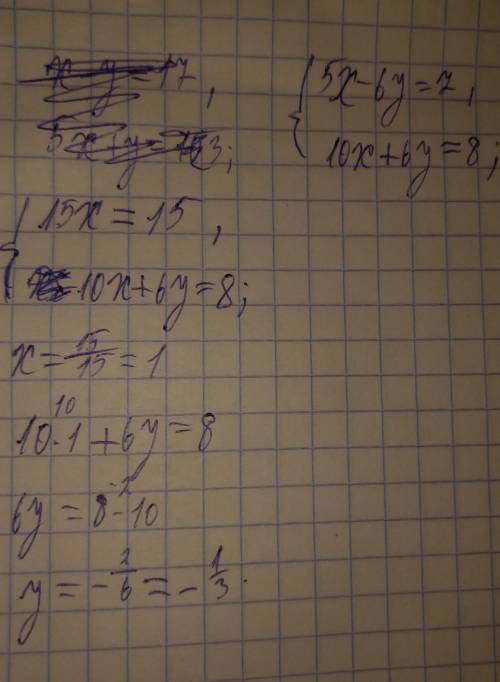 5x-6y=7,
10x+6y=8;
15x=15,
10x+6y=8;
x=15/15=1
10
10·1+6y=8
-2
6y=8-10
y=-2/6=-1/3.